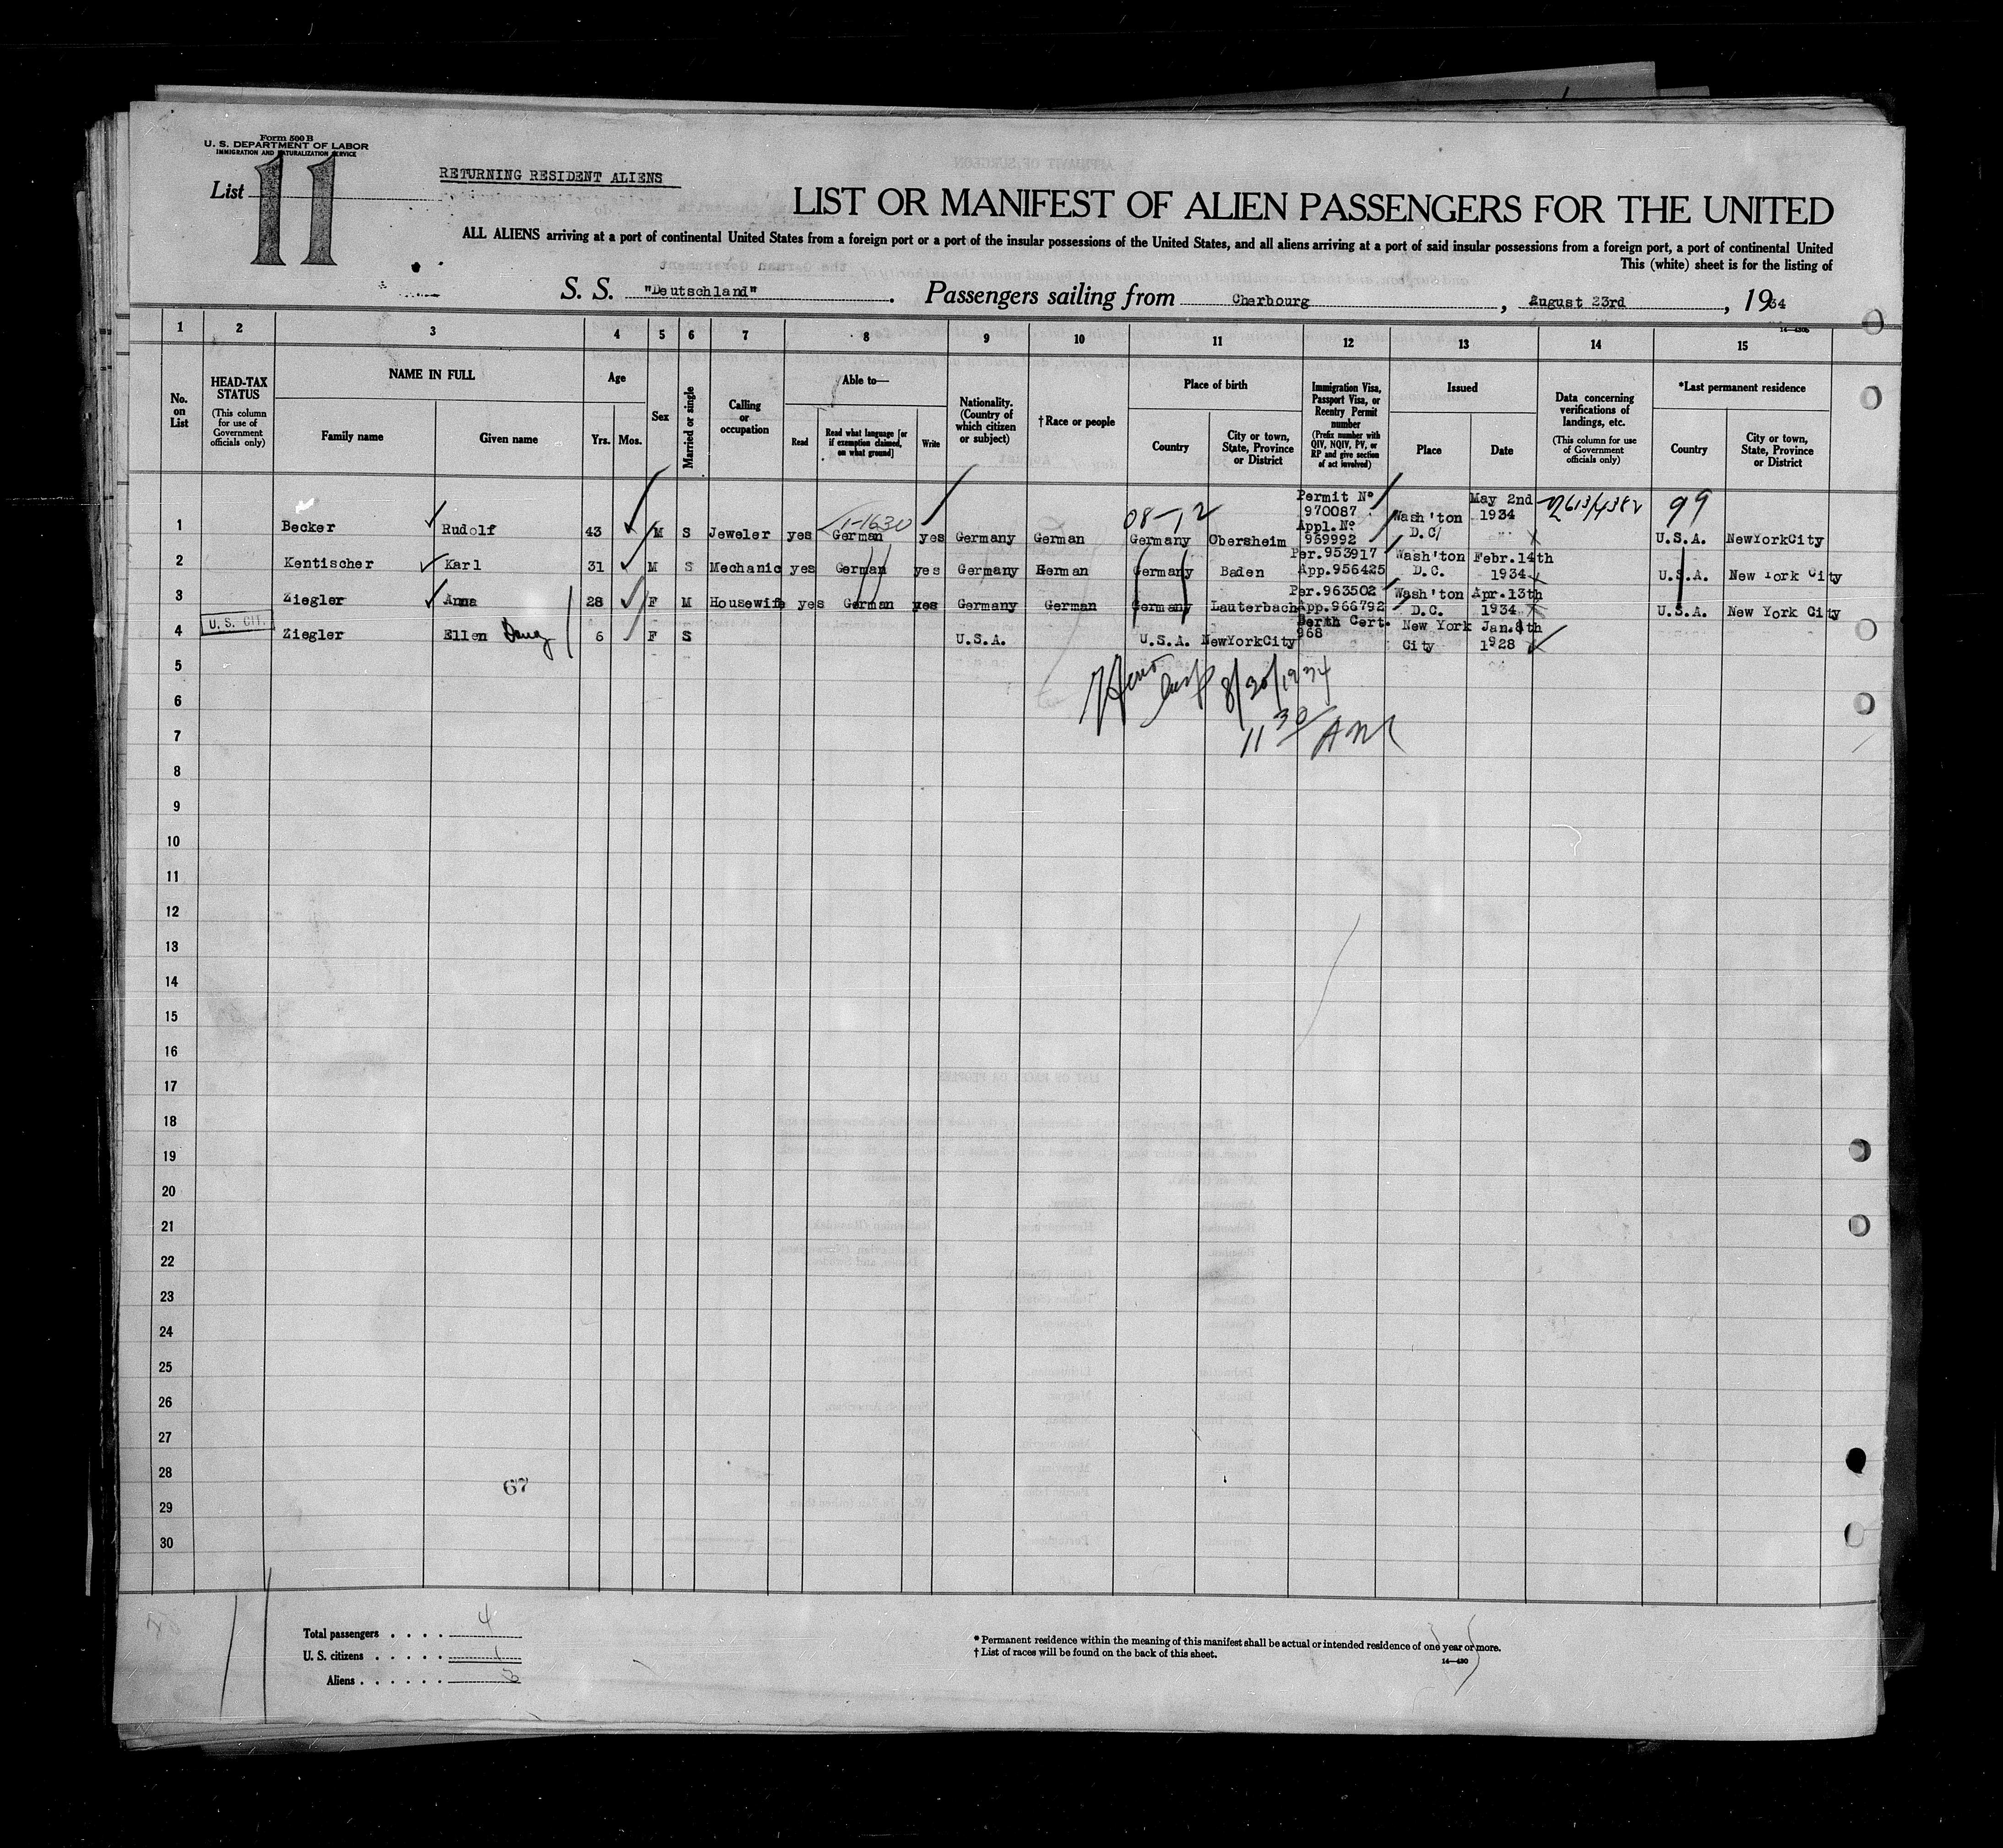 Form 500 B
U. S. DEPARTMENT OF LABOR
IMMIGRATION AND NATURALIZATION SERVICE
List 11
RETURNING RESIDENT ALIENS
LIST OR MANIFEST OF ALIEN PASSENGERS FOR THE UNITED
ALL ALIENS arriving at a port of continental United States from a foreign port or a port of the insular possessions of the United States, and all aliens arriving at a port of said insular possessions from a foreign port, a port of continental United
This (white) sheet is for the listing of
S. S. "Deutschland" . Passengers sailing from Charbourg , August 23rd , 1934
1 2 3 4 5 6 7 8 9 10 11 12 13 14 15
No. on List
HEAD-TAX STATUS
(This column for use of Government officials only)
NAME IN FULL
Family name Given name
Age
Yrs. Mos.
Sex
Married or single
Calling or occupation
Able to—
Read
Read what language [or if exemption claimed, on what ground]
Write
Nationality. (Country of which citizen or subject)
† Race or people
Place of birth
Country
City or town, State, Province or District
Immigration Visa, Passport Visa, or Reentry Permit number
(Prefix number with QIV, NQIV, PV, or RP and give section of act involved)
Issued
Place Date
Data concerning verifications of landings, etc.
(This column for use of Government officials only)
*Last permanent residence
Country
City or town, State, Province or District
1-1630
08-12
99
1 Becker Rudolf 43 M S Jeweler yes German yes Germany German Germany Obersheim Permit No 970087 Appl.No 969992 Wash'ton D.C/ May 2nd 1934 U.S.A. NewYorkCity
2 Kentischer Karl 31 M S Mechanic yes German yes Germany German Germany Baden Per.953917 App.956425 Wash'ton D.C. Febr.14th 1934 U.S.A. New York City
3 Ziegler Anna 28 F M Housewife yes German yes Germany German Germany Lauterbach Per.963502 App.966792 Wash'ton D.C. Apr.13th 1934 U.S.A. New York City
U. S. CIT.
4 Ziegler Ellen Daug 6 F S U.S.A. U.S.A. NewYorkCity Berth Cert. 968 New York City Jan.8th 1928
5
8/30/1934
6
11 30 AM
7
8
9
10
11
12
13
14
15
16
17
18
19
20
21
22
23
24
25
26
27
28
67
29
30
Total passengers . . . . 4
U. S. citizens . . . . . 1
Aliens . . . . . . 3
* Permanent residence within the meaning of this manifest shall be actual or intended residence of one year or more.
† List of races will be found on the back of this sheet.
14—430